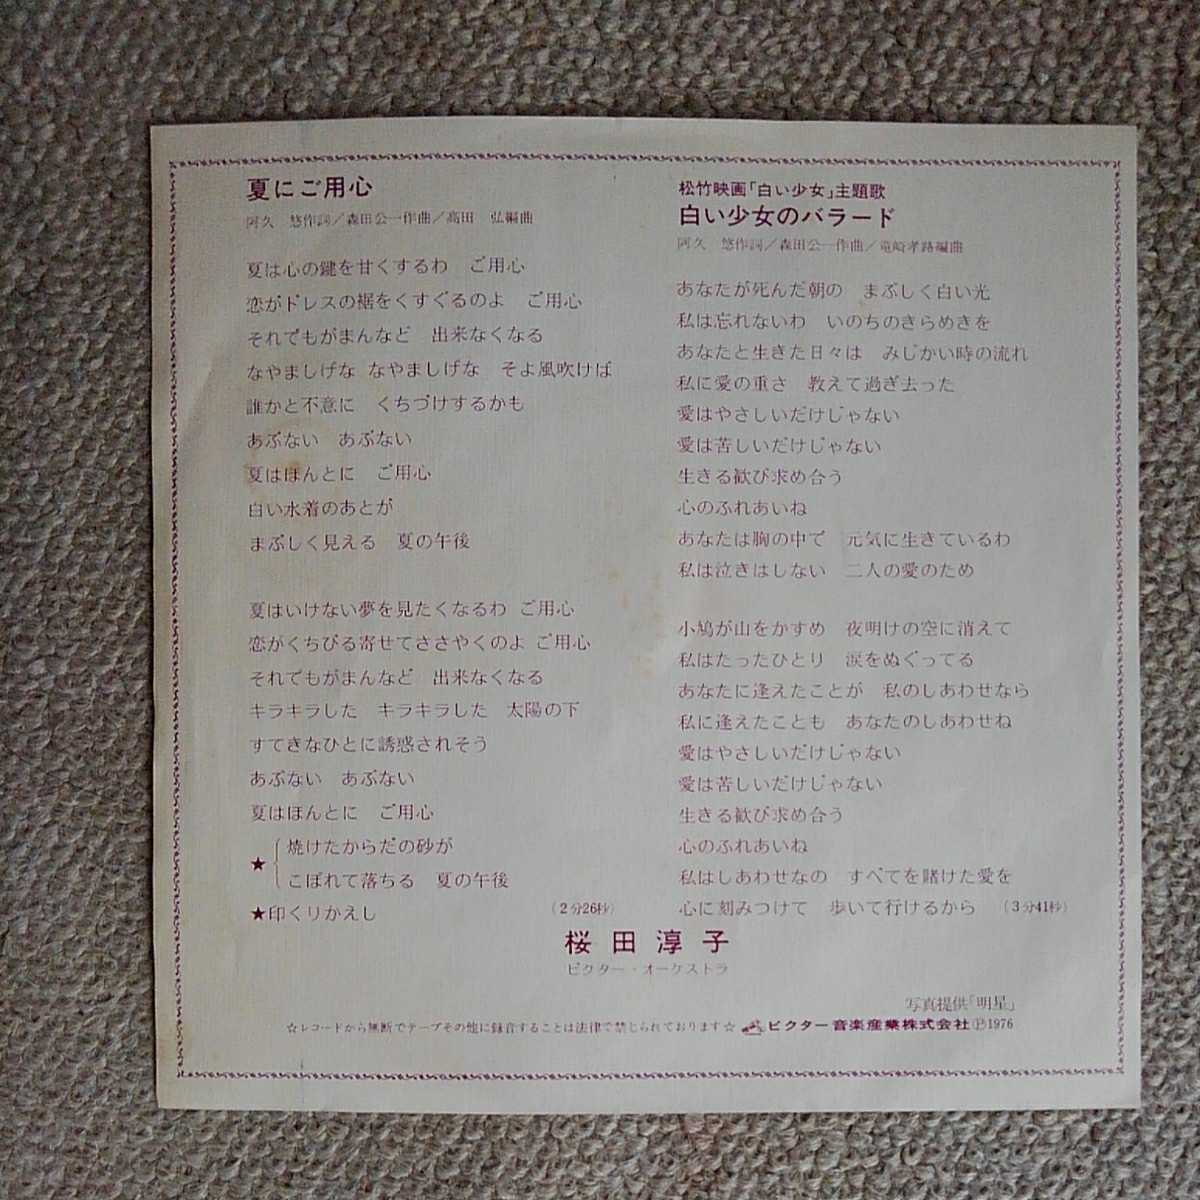 夏にご用心
阿久　悠作詞／森田公一作曲／高田　弘編曲
夏は心の鍵を甘くするわ　ご用心
恋がドレスの裾をくすぐるのよ　ご用心
それでもがまんなど　出来なくなる
なやましげな なやましげな　そよ風吹けば
誰かと不意に　くちづけするかも
あぶない　あぶない
夏はほんとに　ご用心
白い水着のあとが
まぶしく見える　夏の午後
夏はいけない夢を見たくなるわ ご用心
恋がくちびる寄せてささやくのよ ご用心
それでもがまんなど　出来なくなる
キラキラした　キラキラした　太陽の下
すてきなひとに誘惑されそう
あぶない　あぶない
夏はほんとに　ご用心
★焼けたからだの砂が
こぼれて落ちる　夏の午後
★印くりかえし　（2分26秒）
松竹映画「白い少女」主題歌
白い少女のバラード
阿久　悠作詞／森田公一作曲／竜崎孝路編曲
あなたが死んだ朝の　まぶしく白い光
私は忘れないわ　いのちのきらめきを
あなたと生きた日々は　みじかい時の流れ
私に愛の重さ　教えて過ぎ去った
愛はやさしいだけじゃない
愛は苦しいだけじゃない
生きる歓び求め合う
心のふれあいね
あなたは胸の中で　元気に生きているわ
私は泣きはしない　二人の愛のため
小鳩が山をかすめ　夜明けの空に消えて
私はたったひとり　涙をぬぐってる
あなたに逢えたことが　私のしあわせなら
私に逢えたことも　あなたのしあわせね
愛はやさしいだけじゃない
愛は苦しいだけじゃない
生きる歓び求め合う
心のふれあいね
私はしあわせなの　すべてを賭けた愛を
心に刻みつけて　歩いて行けるから　（3分41秒）
桜田淳子
ビクター・オーケストラ
写真提供「明星」
☆レコードから無断でテープその他に録音することは法律で禁じられております☆ ビクター音楽産業株式会社 Ⓟ1976